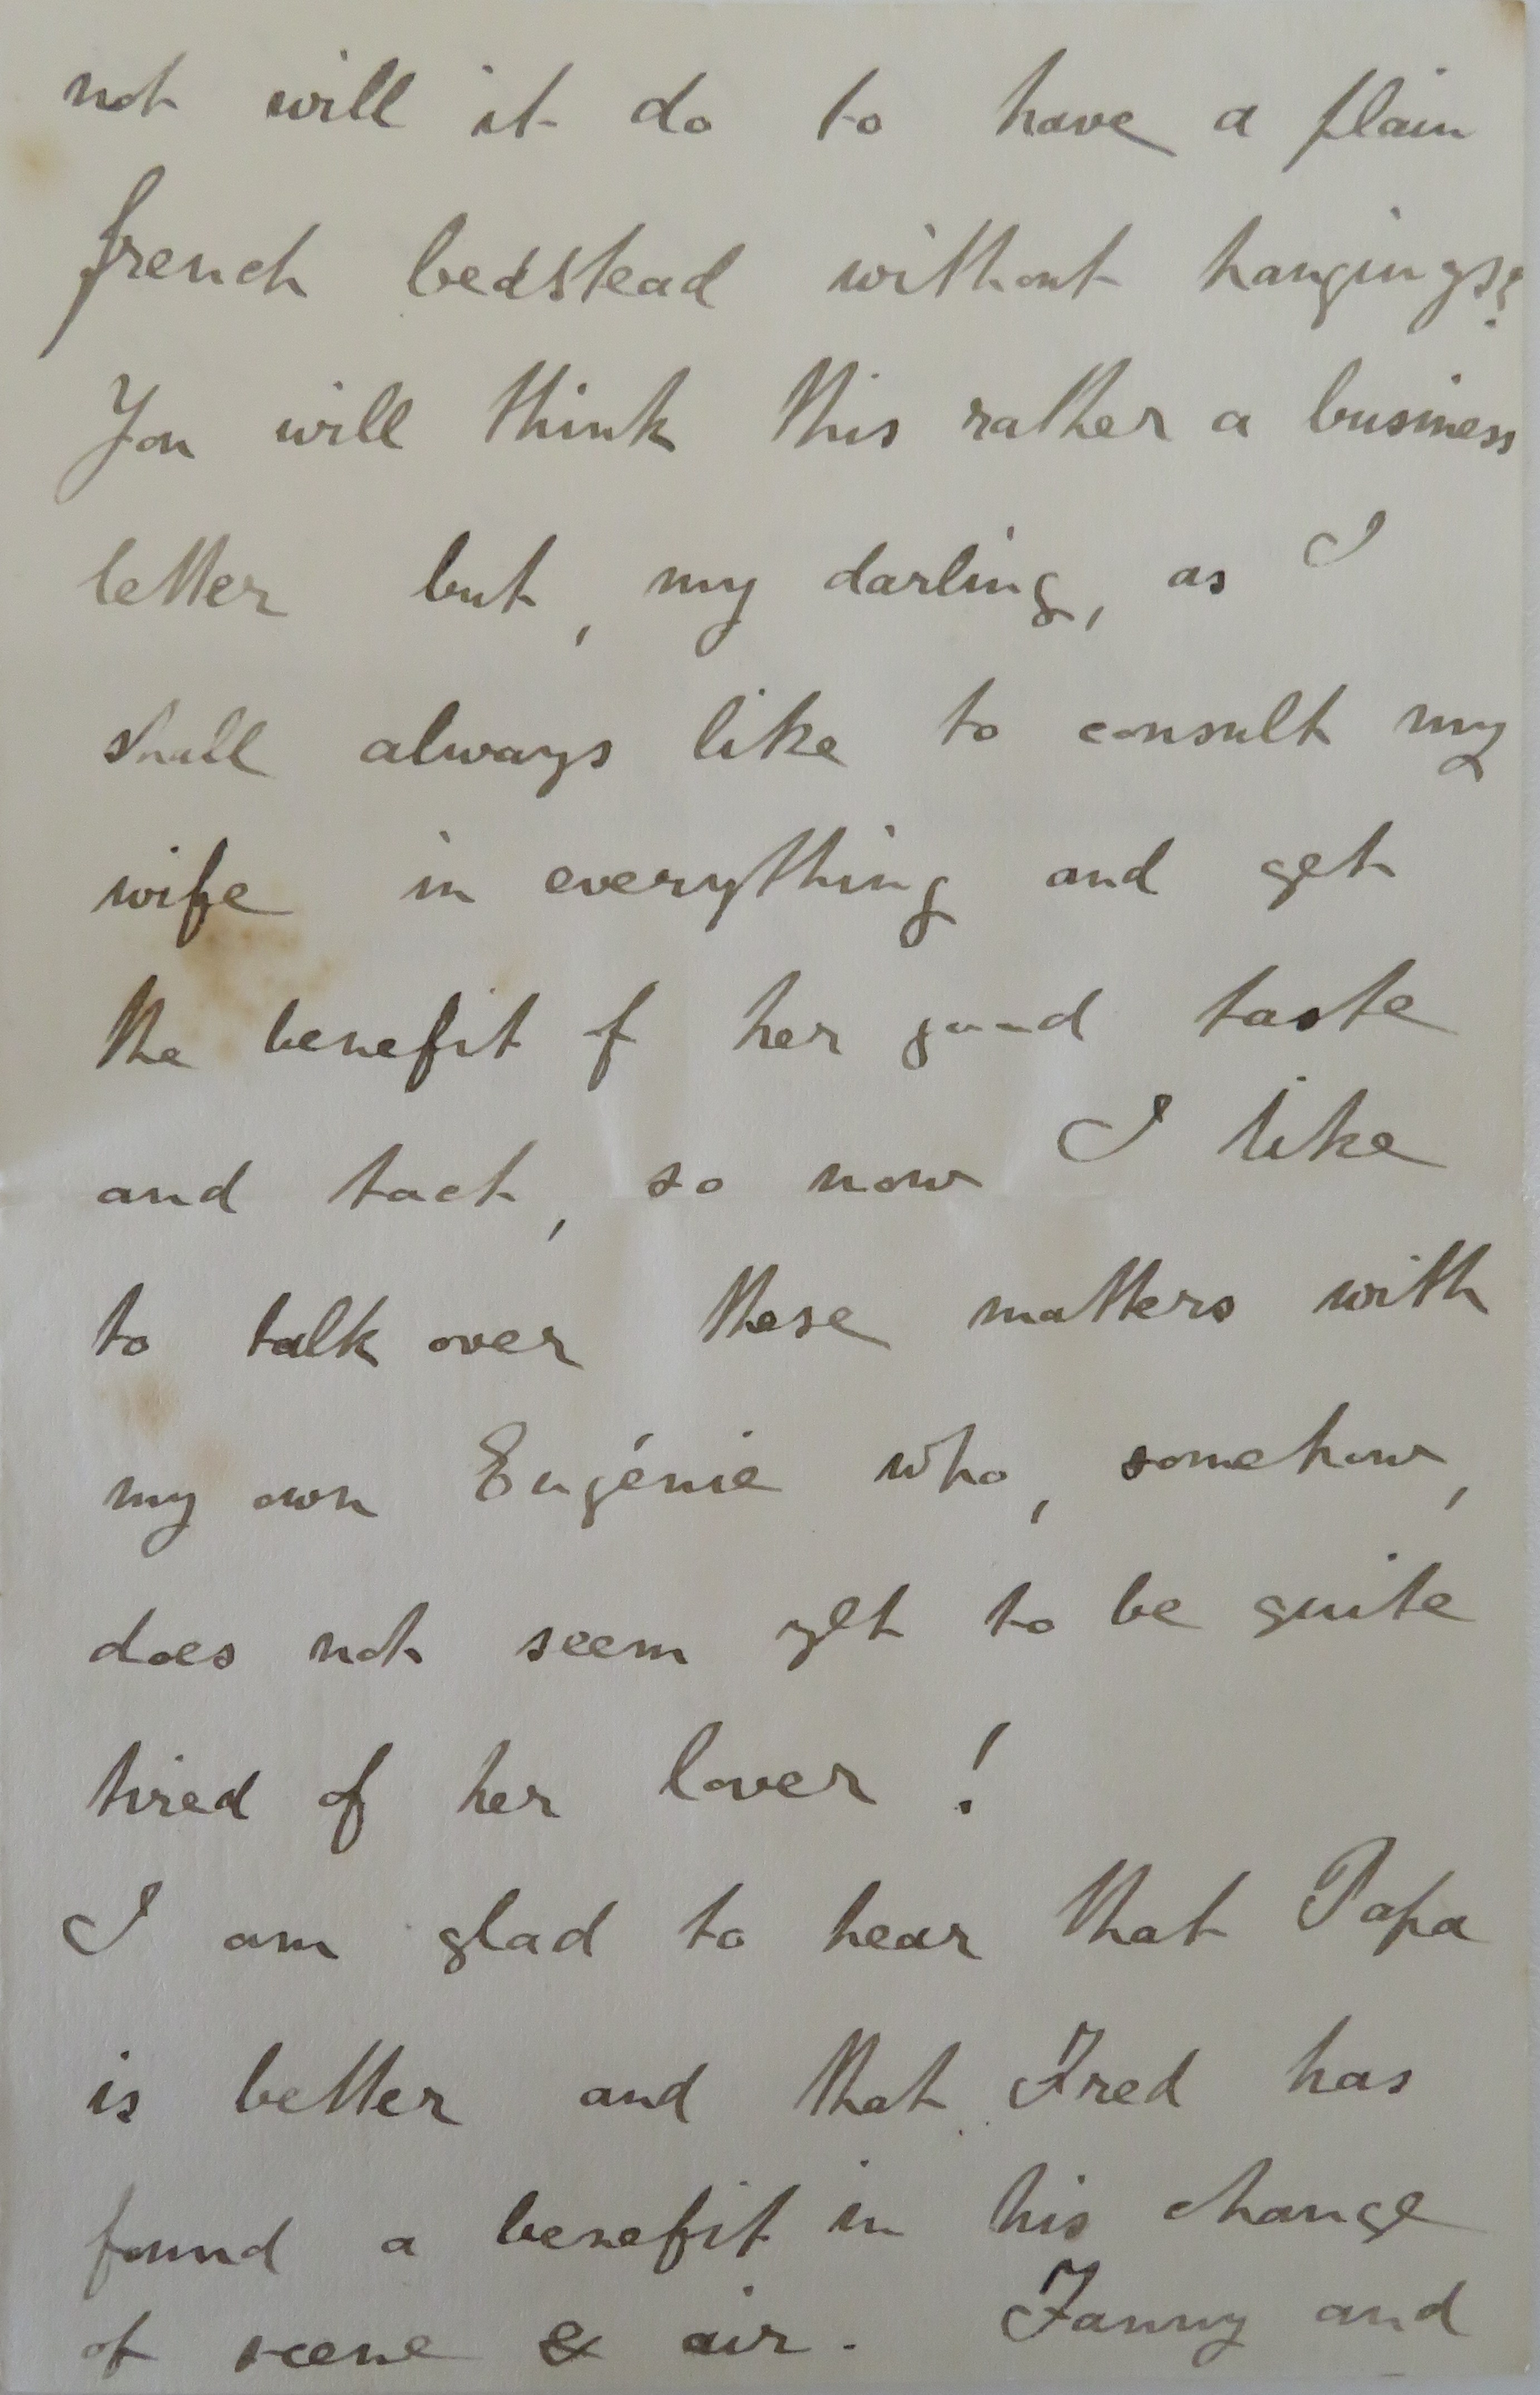 not will it do to have a plain
french bedstead without hangings?
You will think this rather a business
letter but, my darling, as I
shall always like to consult my
wife in everything and get
the benefit of her good taste
and tact, so now I like
to talk over these matters with
my own Eugénie who, somehow,
does not seem yet to be quite
tired of her lover!
I am glad to hear that Papa
is better and that Fred has
found a benefit in his change
of scene & air. Fanny and